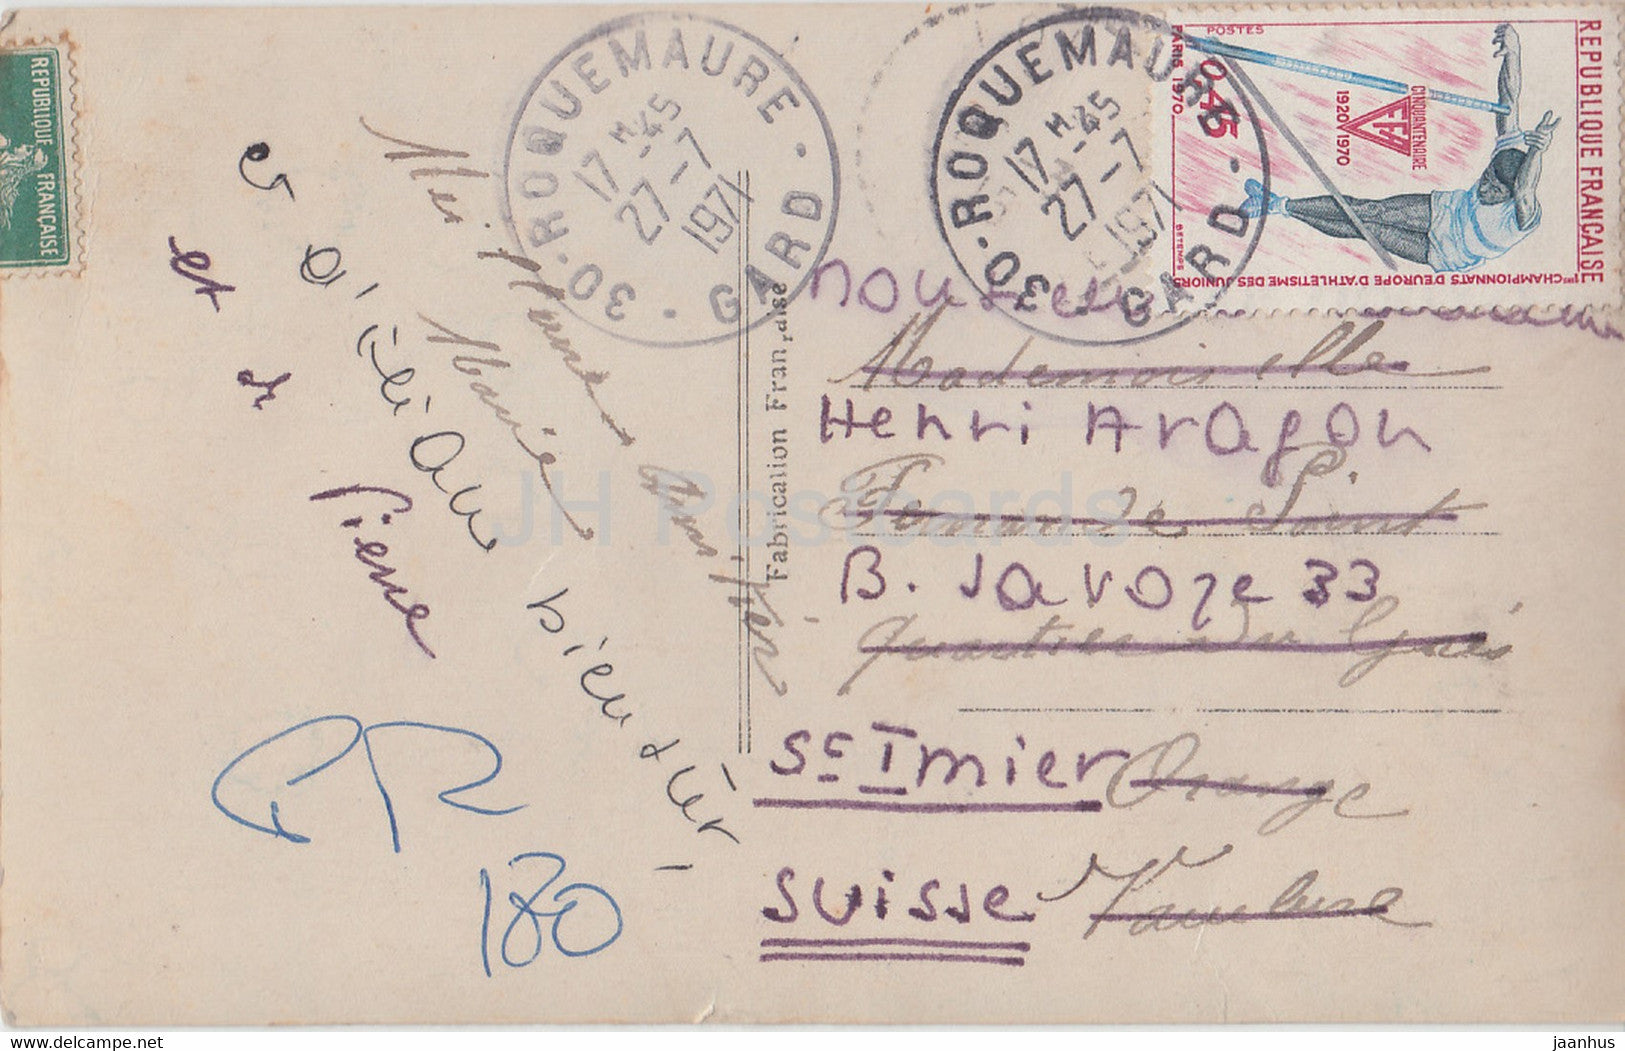 REPUBLIQUE FRANÇAISE
30-ROQUEMAURE - GARD
17 H 45
27 - 7
1971
30-ROQUEMAURE - GARD
17 H 45
27 - 7
1971
REPUBLIQUE FRANÇAISE
POSTES
0,45
PARIS 1970
CINQUANTENAIRE
FFA
1920 1970
1ers CHAMPIONNATS D'EUROPE D'ATHLETISME DES JUNIORS
BETEMPS
Marie
et d'
bientôt
et de
Pierre
180
Fabrication Française
Mademoiselle
Henri Aragon
Fernande
B. Savoye 33
Quartier du Grès
St Imier
Orange
SUISSE
Vaucluse
JH Postcards
www.delcampe.net
jaanhus